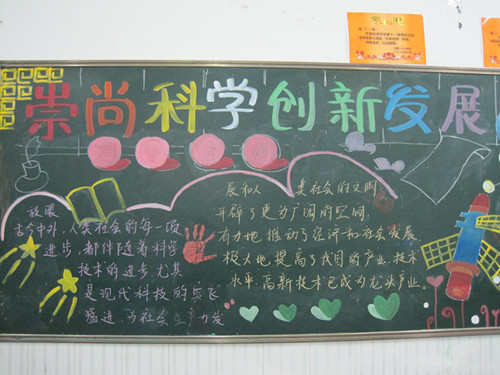 崇尚科学创新发展
放眼
古今中外,人类社会的每一级
进步,都伴随着科学
技术的进步尤其
是现代科技的突飞
猛进 为社会生产力发
展和人 类社会的文明
开辟了更为广阔的空间,
有力地推动了经济和社会发展
极大地提高了我国的产业技术
水平,高新技术已成为龙头产业.